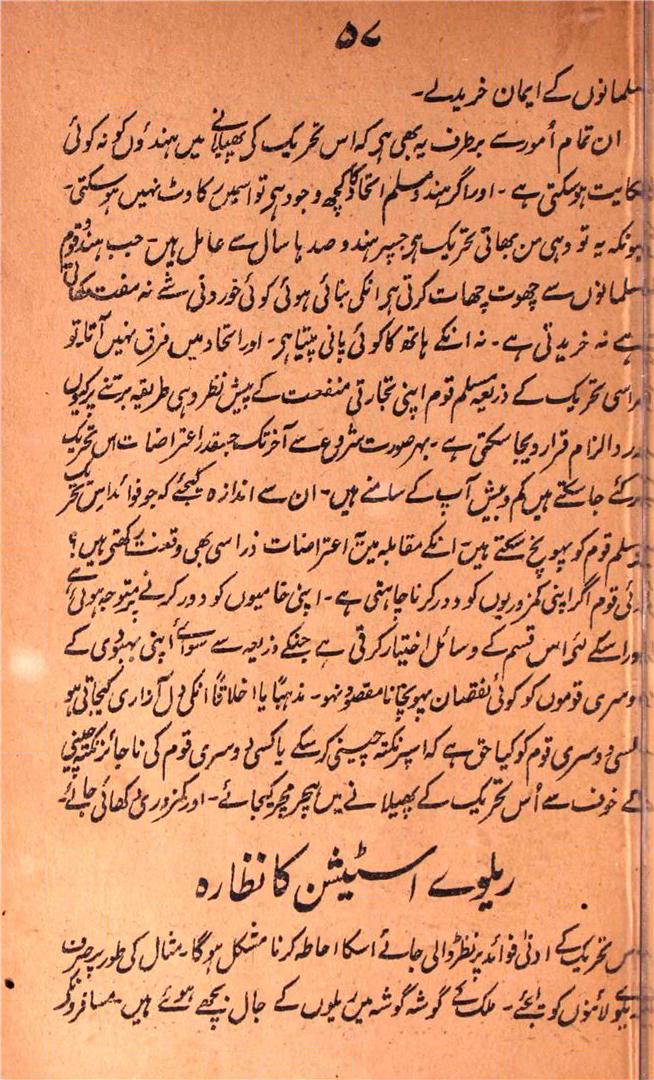 ۵۷
مسلمانوں کے ایمان خریدلے۔
ان تمام اُمور سے برطرف یہ بھی ہی کہ اس تحریک کی پھیلانے میں ہندؤں کو نہ کوئی
شکایت ہو سکتی ہے۔ اور اگر ہندو مسلم اتحاد کا کچھ وجود ہی تو اسمیں رکاوٹ نہیں ہو سکتی۔
کیونکہ یہ تو وہی من بھاتی تحریک ہی جسپر ہندو صدہا سال سے عامل ہیں۔ جب ہندو قوم
مسلمانوں سے چھوت چھات کرتی ہی انکی بنائی ہوئی کوئی خوردنی شے نہ مفت کھاتی
ہے نہ خریدتی ہے۔ نہ انکے ہاتھ کا کوئی پانی پیتا ہی۔ اور اتحاد میں فرق نہیں آتا۔ تو
اسی تحریک کے ذریعہ مسلم قوم اپنی تجارتی منفعت کے پیش نظر وہی طریقہ برتنے پر کیوں
مورد الزام قرار دیجا سکتی ہے۔ بہر صورت شروع سے آخر تک جسقدر اعتراضات اس تحریک
پر کئے جا سکتے ہیں کم و بیش آپ کے سامنے ہیں۔ ان سے اندازہ کیجئے کہ جو فوائد اس تحریک
مسلم قوم کو پہونچ سکتے ہیں انکے مقابلہ میں یہ اعتراضات ذرا سی بھی وقعت رکھتی ہیں؟
کوئی قوم اگر اپنی کمزوریوں کو دور کرنا چاہتی ہے۔ اپنی خامیوں کو دور کرنے پر متوجہ ہوئی ہے
اور اسکے لئی اس قسم کے وسائل اختیار کرتی ہے جنکے ذریعہ سے سوائے اپنی بہبودی کے
دوسری قوموں کو کوئی نقصان پہونچانا مقصود نہو۔ نہ مذہبًا یا اخلاقًا انکی دل آزاری کیجاتی ہو
کسی دوسری قوم کو کیا حق ہے کہ اسپر نکتہ چینی کر سکے یا کسی دوسری قوم کی ناجائز نکتہ چینی
کے خوف سے اُس تحریک کے پھیلانے میں ہچر مچر کیجائے۔ اور کمزوری دکھائی جائے۔
ریلوے اسٹیشن کا نظارہ
اس تحریک کے ادنیٰ فوائد پر نظر ڈالی جائے اسکا احاطہ کرنا مشکل ہوگا۔ مثال کی طور پر صرف
ریلوے لائنوں کو لیجئے۔ ملک کے گوشہ گوشہ میں ریلوں کے جال بچھے ہوئے ہیں۔ مسافروں کو